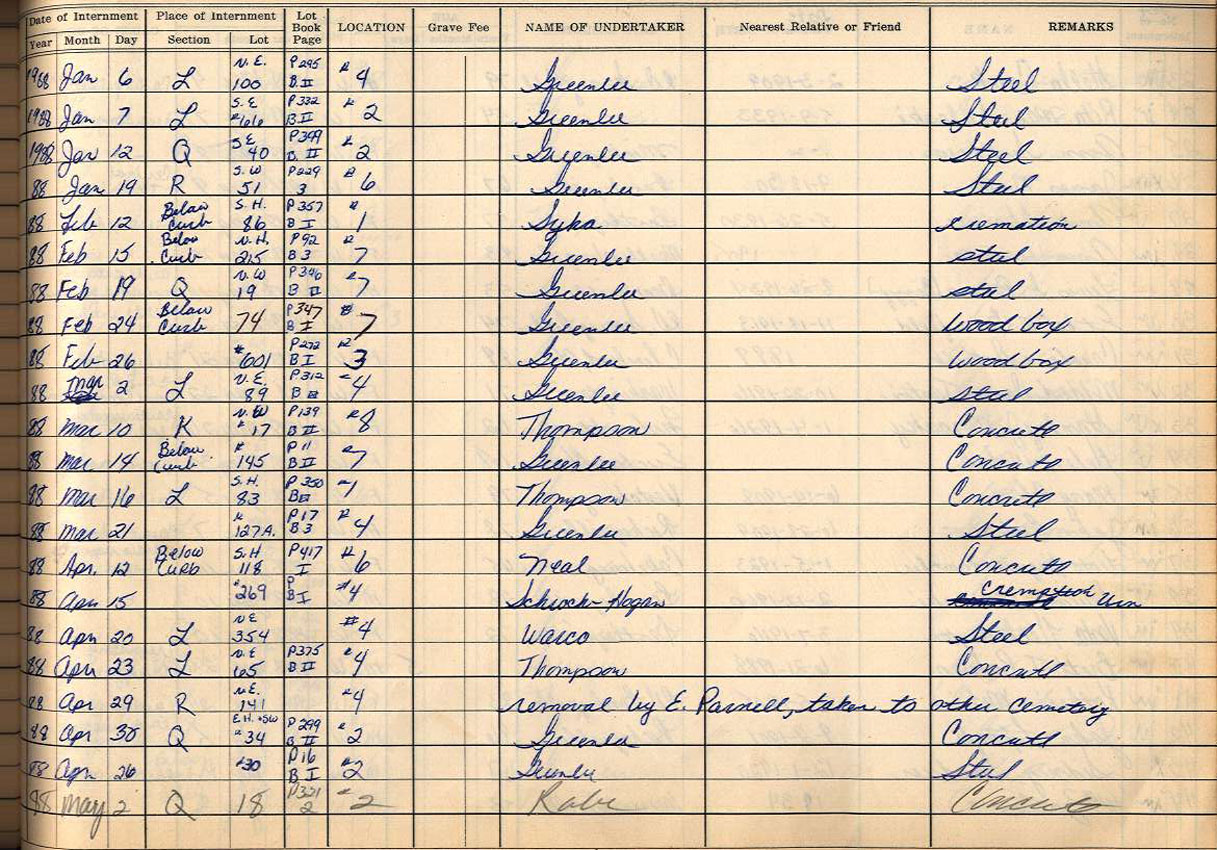 Date of Internment Place of Internment Lot Book Page LOCATION Grave Fee NAME OF UNDERTAKER Nearest Relative or Friend REMARKS
Year Month Day Section Lot
1988 Jan 6 L N.E. 100 P295 B II # 4 Greenlee Steel
1988 Jan 7 L S.E #66 P332 B II # 2 Greenlee Steel
1988 Jan 12 Q S.E 40 P399 B II # 2 Greenlee Steel
88 Jan 19 R S.W 51 P229 3 # 6 Greenlee Steel
88 Feb 12 Below Curb S.H. 86 P357 B I # 1 Syka cremation
88 Feb 15 Below Curb N.H. 215 P92 B 3 # 7 Greenlee steel
88 Feb 19 Q N.W 19 P346 B II # 7 Greenlee steel
88 Feb 24 Below Curb 74 P347 B I # 7 Greenlee wood box
88 Feb 26 #601 P272 B I # 3 Greenlee wood box
88 Mar 2 L N.E. 89 P312 B # 4 Greenlee steel
88 Mar 10 K N.W #17 P139 B II # 8 Thompson Concrete
88 Mar 14 Below Curb # 145 P11 B II # 7 Greenlee Concrete
88 Mar 16 L S.H. 83 P350 B # 1 Thompson Concrete
88 Mar 21 # 127A. P17 B 3 # 4 Greenlee Steel
88 Apr. 12 Below Curb S.H 118 P417 I # 6 Neal Concrete
88 Apr 15 #269 P B I #4 Schrock-Hogan cremation Urn
88 Apr 20 L N.E 354 #4 Wasco Steel
88 Apr 23 L N.E 105 P375 B II #4 Thompson Concrete
88 Apr 29 R N.E. 141 #4 removal by E. Parnell, taken to other cemetery
88 Apr 30 Q E.H. + SW #34 P299 B II # 2 Greenlee Concrete
88 Apr 26 #30 P16 B I #2 Greenlee Steel
88 May 2 Q 18 P321 2 # 2 Rabe Concrete